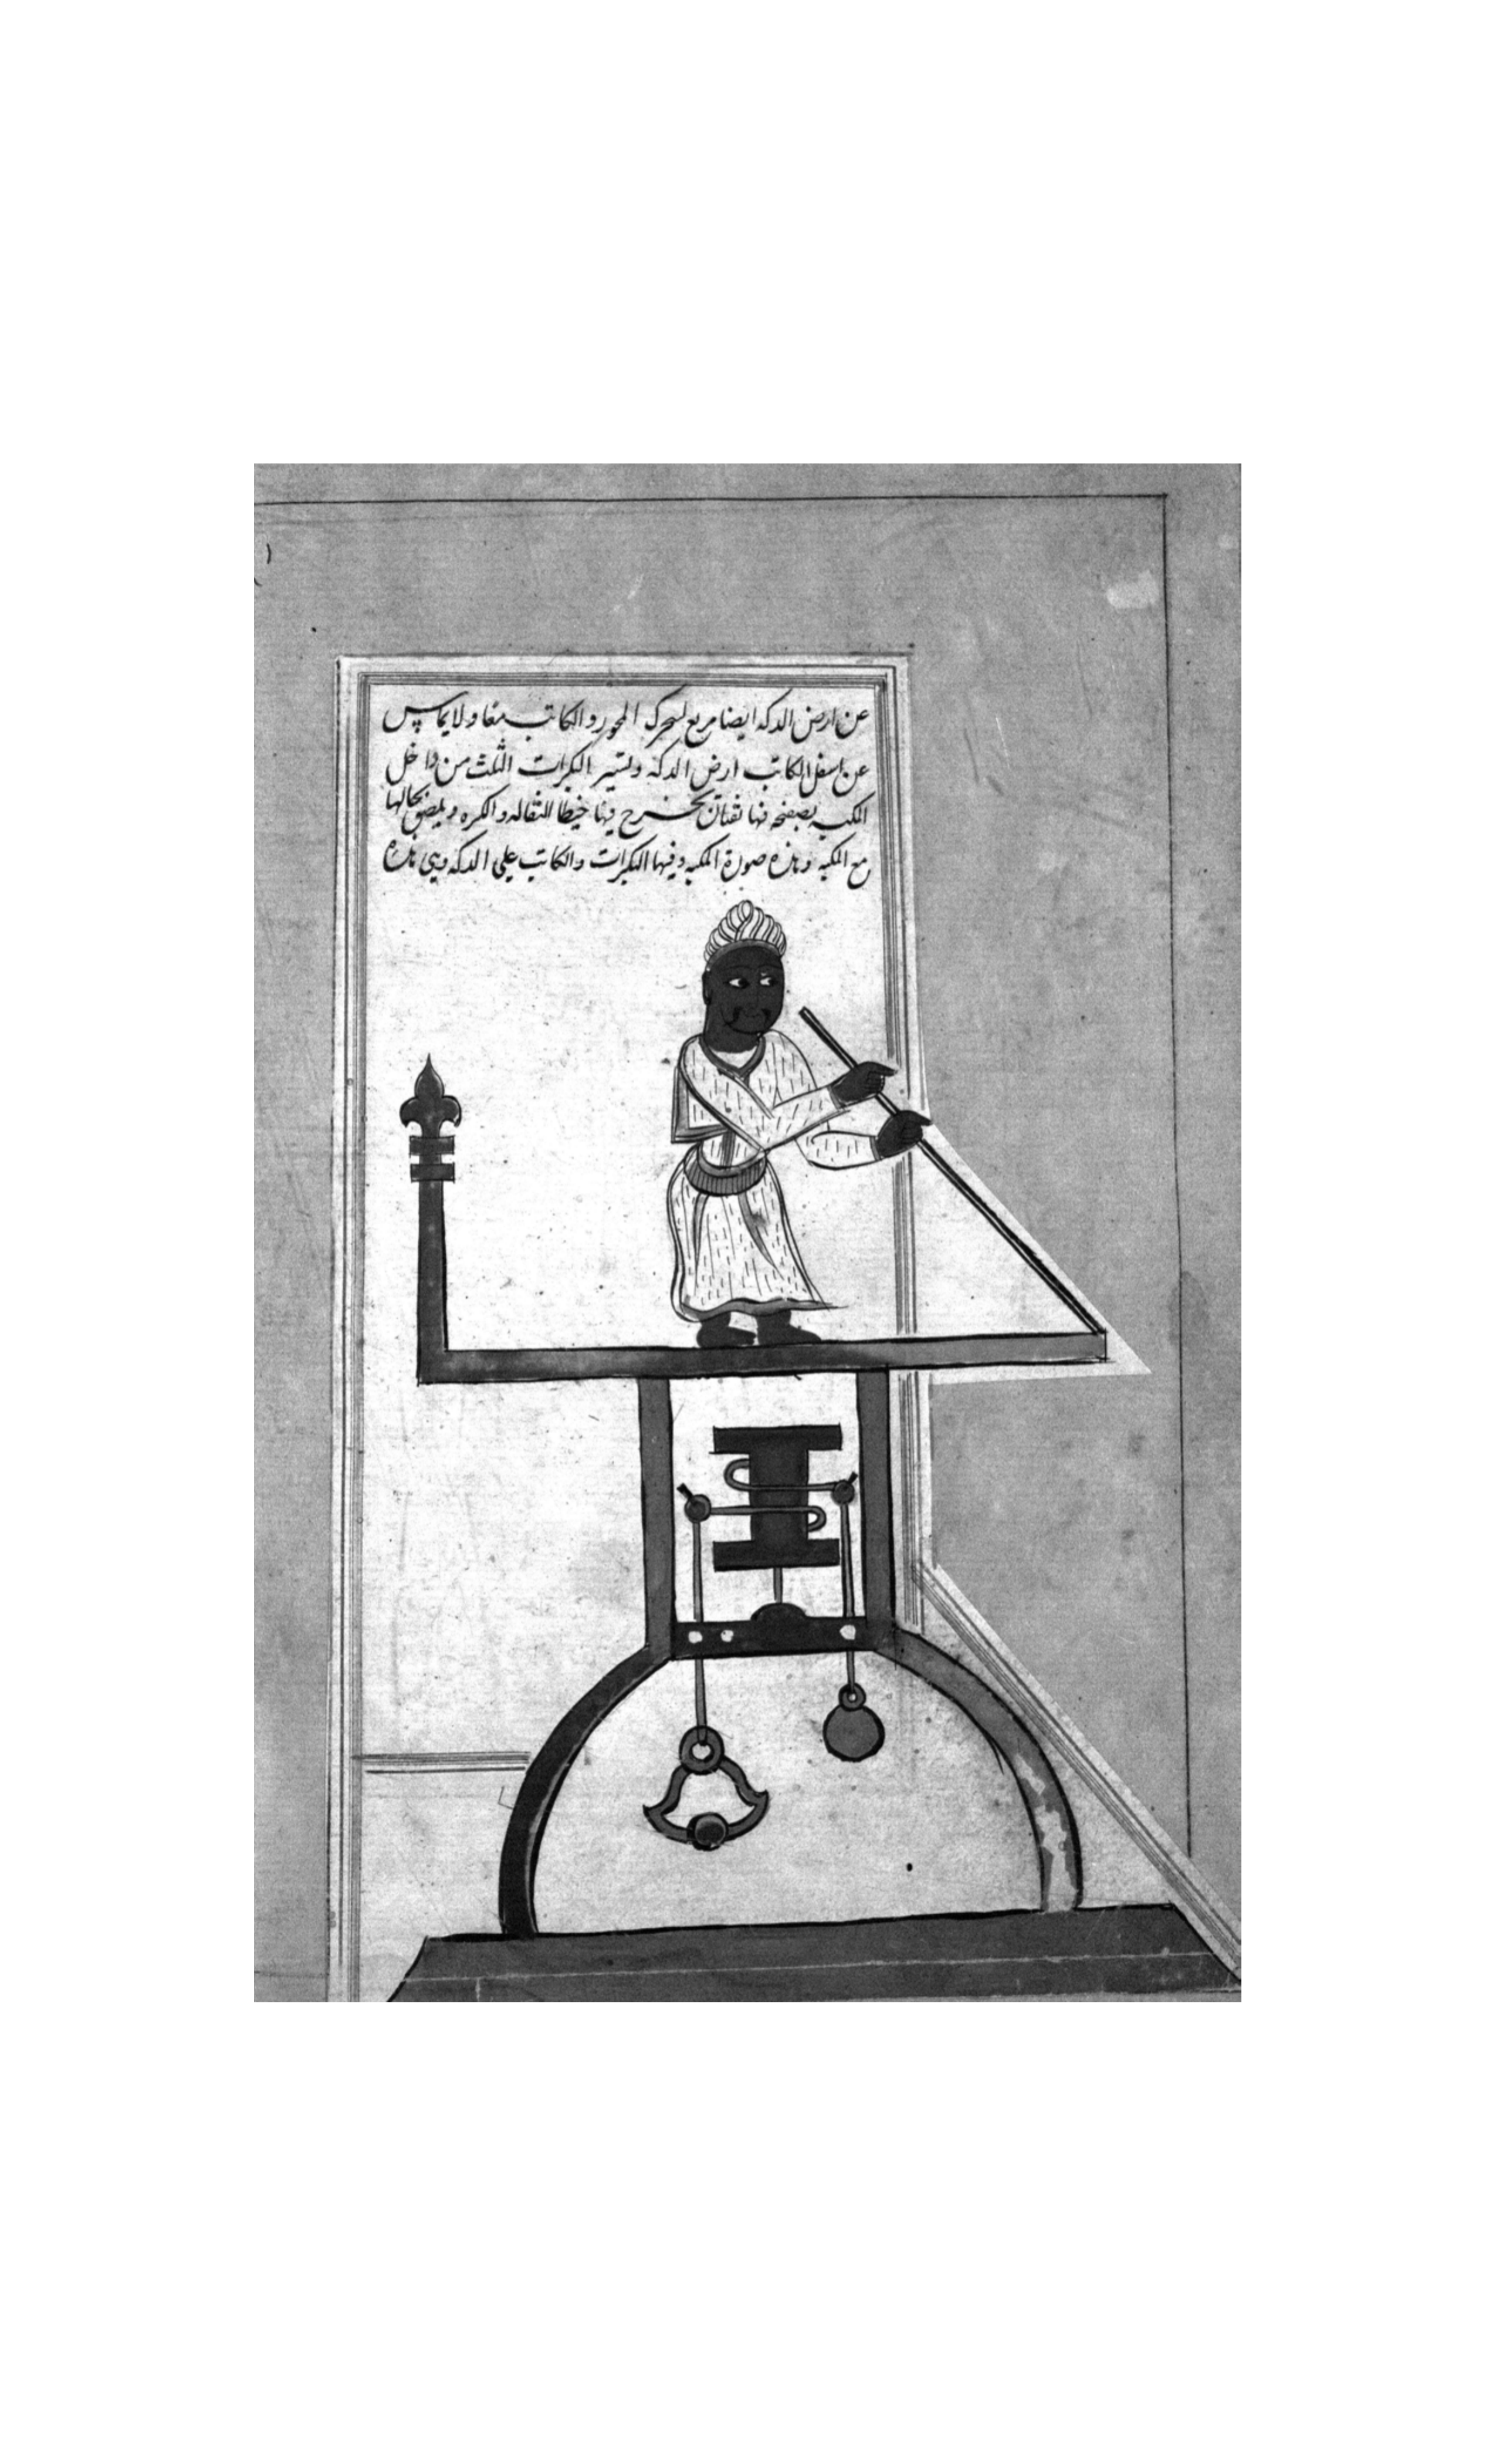 عن ارض الدكة ايضا مربع لسحرك المحور والكاتب معا ولا يماس
عن اسفل الكاتب ارض الدكة وتستير البكرات الثلث من داخل
المكبه بصفحه فيها ثقبان يخرج فيها خيطا الثقاله والكره ويلصق بحالها
مع المكبه وهذه صورة المكبه وفيها البكرات والكاتب على الدكه وهي هذه